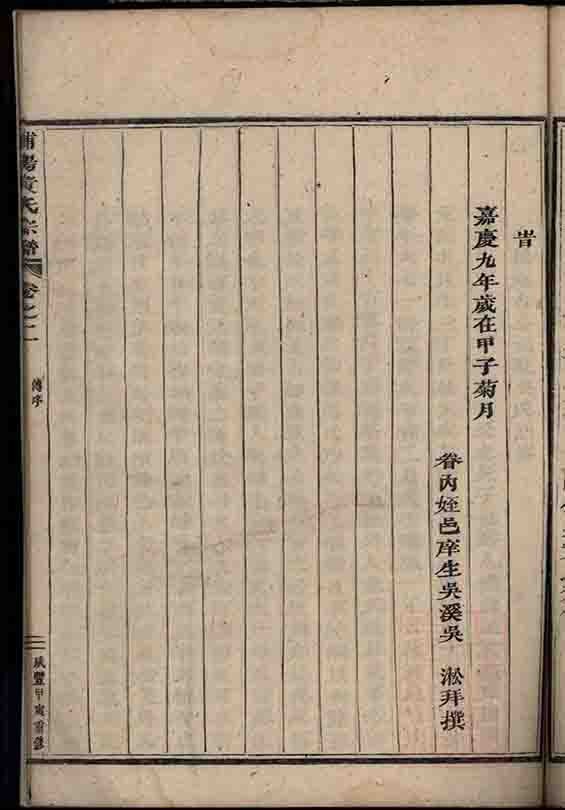 旹
嘉慶九年歲在甲子菊月
眷內姪邑庠生吳溪吳　淞拜撰
浦陽黃氏宗譜
卷之二
傳序
咸豐甲寅重修